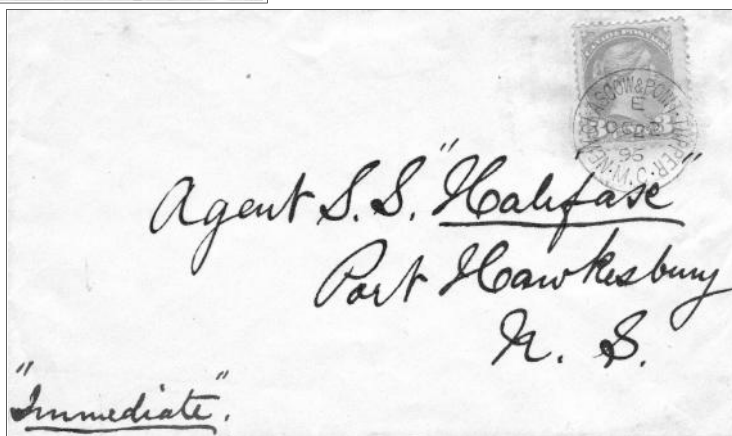 CANADA POSTAGE
NEW GLASGOW & POINT TUPPER · M.C.
E
95
3
Agent S.S. "Halifax"
Port Hawkesbury
N. S.
"Immediate".